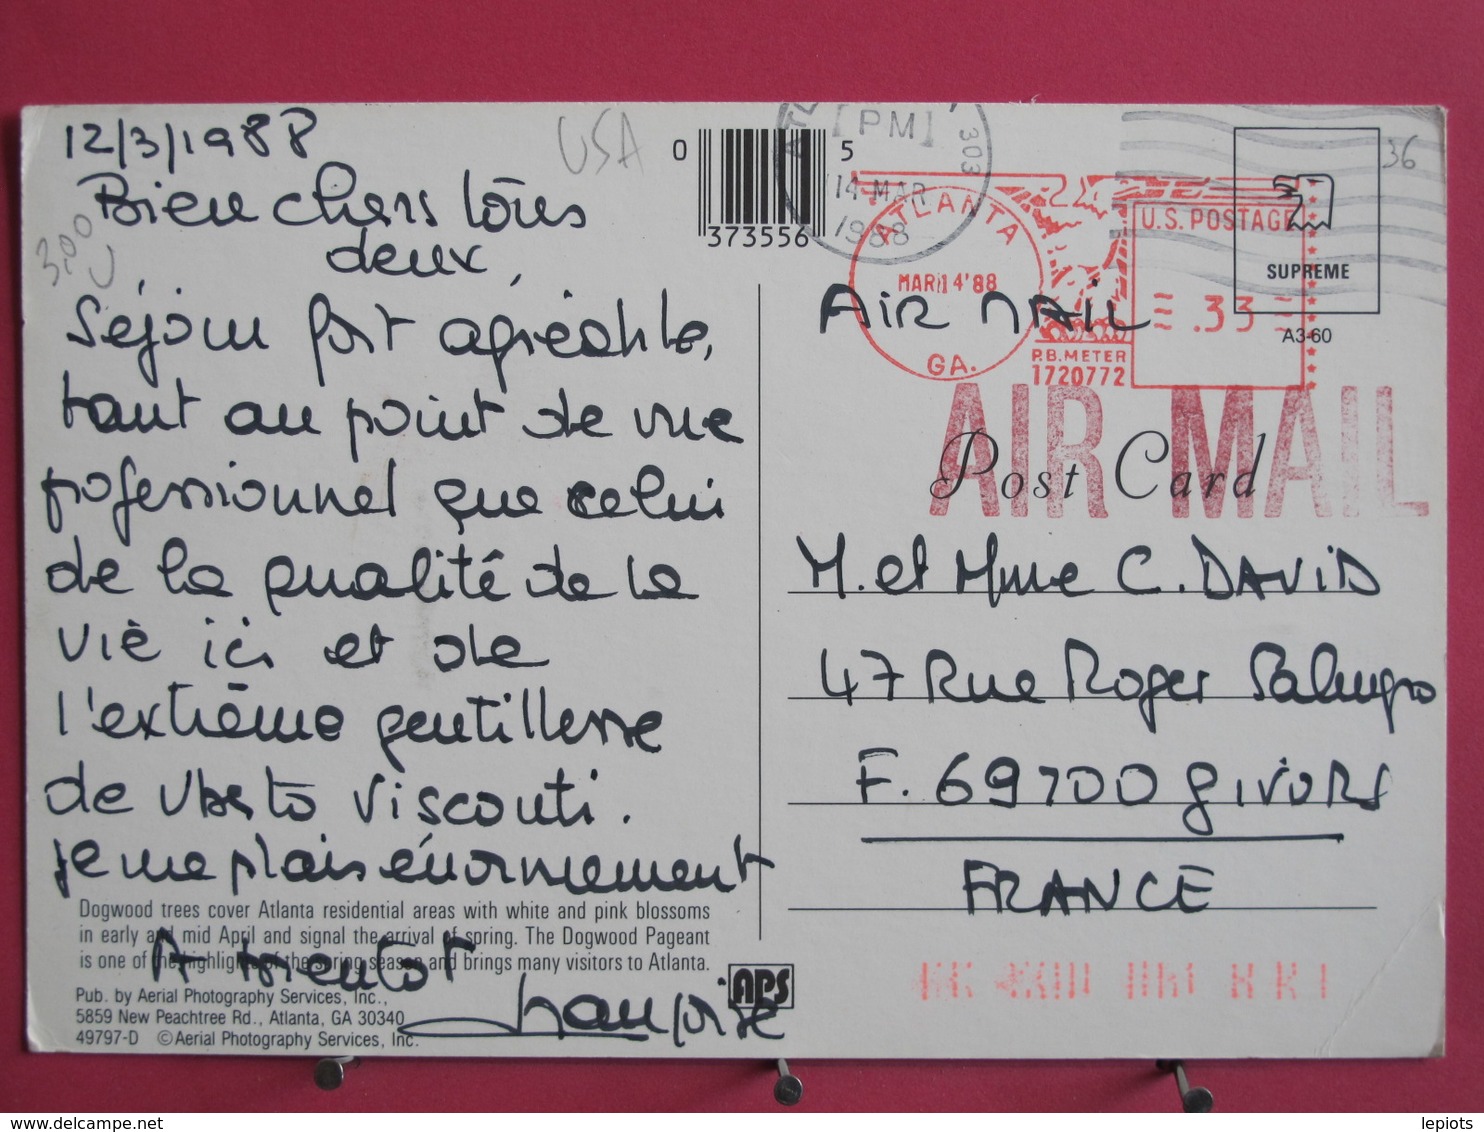 12/3/1988
Bien chers tous
deux,
Séjour fort agréable,
tant au point de vue
professionnel que celui
de la qualité de la
vie ici et de
l'extrême gentillesse
de Uberto Visconti.
Je me plais énormément
Dogwood trees cover Atlanta residential areas with white and pink blossoms
in early and mid April and signal the arrival of spring. The Dogwood Pageant
is one of the highlights of the spring season and brings many visitors to Atlanta.
A bientôt
Françoise
Pub. by Aerial Photography Services, Inc.,
5859 New Peachtree Rd., Atlanta, GA 30340
49797-D ©Aerial Photography Services, Inc.
APS
USA
3,00
U
0 373556 5
[PM]
303
14 MAR
1988
ATLANTA
MAR 14 '88
GA.
P.B. METER
1720772
U.S. POSTAGE
.33
36
SUPREME
A3-60
AIR MAIL
AIR MAIL
Post Card
M. et Mme C. DAVID
47 Rue Roger Salengro
F. 69700 GIVORS
FRANCE
lepiots
delcampe.net